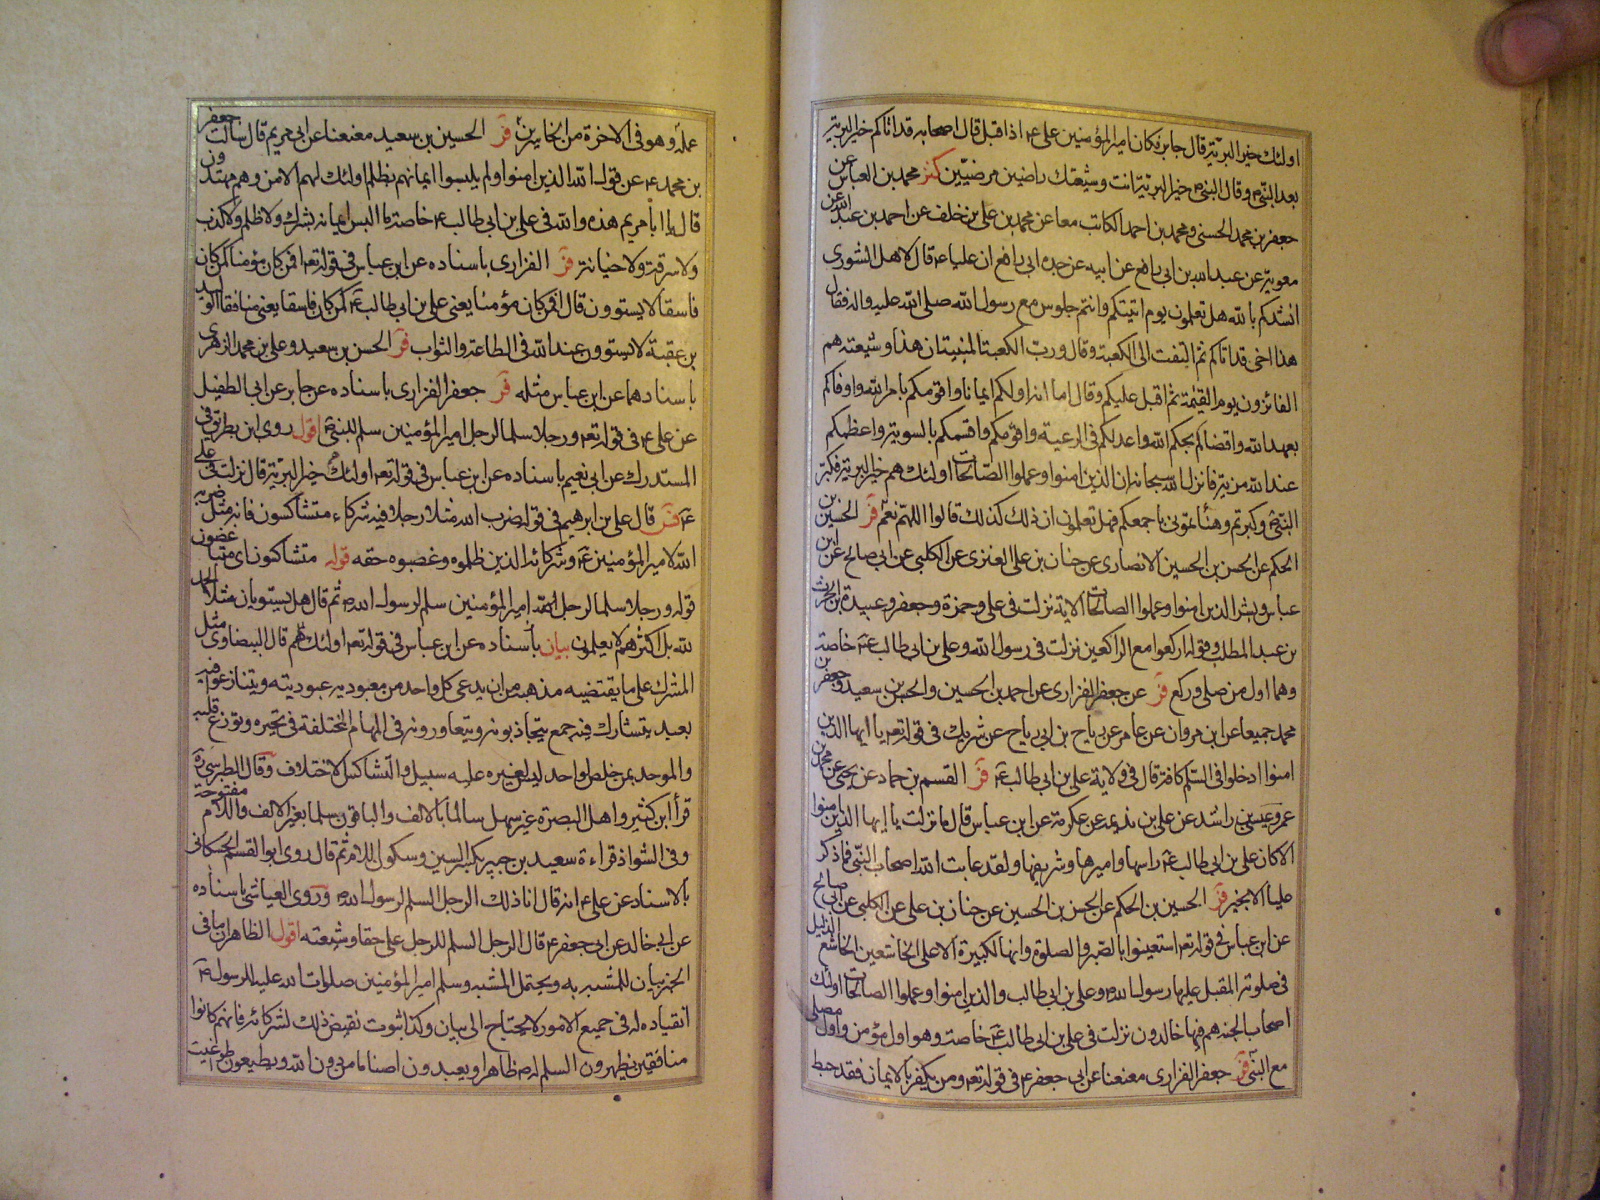 اولئك خير البرية قال جابر فكان امير المؤمنين على ع اذا قبل قال اصحابه قد اتاكم خير البرية
بعد النبى ص وقال النبى ص خير البرية انت وشيعتك راضين مرضيين كنز محمد بن العباس عن
جعفر بن محمد الحسنى ومحمد بن احمد الكاتب معا عن محمد بن على بن خلف عن احمد بن عبد الله عن
معوية عن عبد الله بن ابى رافع عن ابيه عن جده ابى رافع ان عليا ع قال لاهل الشورى
انشدكم بالله هل تعلمون يوم اتيتكم وانتم جلوس مع رسول الله صلى الله عليه واله فقال
هذا اخى قد اتاكم ثم التفت الى الكعبة وقال ورب الكعبة المبنية ان هذا وشيعته هم
الفائزون يوم القيمة ثم اقبل عليكم وقال اما انه اولكم ايمانا واقومكم بامر الله واوفاكم
بعهد الله واقضاكم بحكم الله واعدلكم فى الرعية واقسمكم بالسوية واعظمكم
عند الله مزية فانزل الله سبحانه ان الذين امنوا وعملوا الصالحات اولئك هم خير البرية فكبر
النبى ص وكبرتم وهنأتمونى باجمعكم فهل تعلمون ان ذلك كذلك قالوا اللهم نعم فر الحسين بن
الحكم عن الحسن بن الحسين الانصارى عن حنان بن على العنزى عن الكلبى عن ابى صالح عن ابن
عباس وبشر الذين امنوا وعملوا الصالحات الاية نزلت فى على وحمزة وجعفر وعبيدة بن الحرث
بن عبد المطلب وقوله اركعوا مع الراكعين نزلت فى رسول الله وعلى بن ابى طالب ع خاصة
وهما اول من صلى وركع فر عن جعفر الفزارى عن احمد بن الحسين والحسن بن سعيد وجعفر بن
محمد جميعا عن ابن مروان عن عامر عن رياح بن ابى رياح عن شريك فى قوله تعه يا ايها الذين
امنوا ادخلوا فى السلم كافة قال فى ولاية على بن ابى طالب ع فر القسم بن حماد عن يحيى عن محمد بن
عمر وعيسى بن راشد عن على بن نديمة عن عكرمة عن ابن عباس قال ما نزلت يا ايها الذين امنوا
الا كان على بن ابى طالب ع راسها واميرها وشريفها ولقد عاتب الله اصحاب النبى فما ذكر
عليا الا بخير فر الحسين بن الحكم عن الحسن بن الحسين عن حنان بن على عن الكلبى عن ابى صالح
عن ابن عباس فى قوله تعه استعينوا بالصبر والصلوة وانها لكبيرة الا على الخاشعين الخاشع الذليل
فى صلوته المقبل عليها رسول الله ص وعلى بن ابى طالب والذين امنوا وعملوا الصالحات اولئك
اصحاب الجنة هم فيها خالدون نزلت فى على بن ابى طالب ع خاصة وهو اول مؤمن واول مصلى
مع النبى فر جعفر الفزارى معنعنا عن ابى جعفر ع فى قوله تعه ومن يكفر بالايمان فقد حبط
عمله وهو فى الاخرة من الخاسرين فر الحسين بن سعيد معنعنا عن ابى مريم قال سالت جعفر
بن محمد ع عن قول الله الذين امنوا ولم يلبسوا ايمانهم بظلم اولئك لهم الامن وهم مهتدون
قال يا ابا مريم هذه والله فى على بن ابى طالب ع خاصة ما البس ايمانه بشرك ولا ظلم ولا كذب
ولا سرقة ولا خيانة فر الفزارى باسناده عن ابن عباس فى قوله تعه افمن كان مؤمنا كمن كان
فاسقا لا يستوون قال افمن كان مؤمنا يعنى على بن ابى طالب ع كمن كان فاسقا يعنى منافقا الوليد
بن عقبة لا يستوون عند الله فى الطاعة والثواب فر الحسن بن سعيد وعلى بن محمد الزهرى
باسنادهما عن ابن عباس مثله فر جعفر الفزارى باسناده عن جابر عن ابى الطفيل
عن على ع فى قوله تعه ورجلا سلما لرجل امير المؤمنين سلم للنبى ص اقول روى ابن بطريق فى
المستدرك عن ابى نعيم باسناده عن ابن عباس فى قوله تعه اولئك هم خير البرية قال نزلت فى على
ع فس قال على بن ابرهيم فى قوله ضرب الله مثلا رجلا فيه شركاء متشاكسون فانه مثل ضربه
الله لامير المؤمنين ع وشركائه الذين ظلموه وغصبوه حقه قوله متشاكسون اى متباغضون
قوله ورجلا سلما لرجل امير المؤمنين سلم لرسول الله ص ثم قال هل يستويان مثلا الحمد
لله بل اكثرهم لا يعلمون بيان باسناده عن ابن عباس فى قوله تعه اولئك هم قال البيضاوى مثل
المشرك على ما يقتضيه مذهبه من ان يدعى كل واحد من معبوديه عبوديته ويتنازعوا فيه
بعبد يتشارك فيه جمع يتجاذبونه ويتعاورونه فى المهام المختلفة فى تحيره وتوزع قلبه
والموحد بمن خلص لواحد ليس لغيره عليه سبيل والتشاكس الاختلاف وقال الطبرسى ره
قرأ ابن كثير واهل البصرة غير سهل سالما بالالف والباقون سلما بغير الالف واللام مفتوحة
وفى الشواذ قراءة سعيد بن جبير بكسر السين وسكون اللام ثم قال روى ابو القسم الحسكانى
بالاسناد عن على ع انه قال انا ذلك الرجل السلم لرسول الله ص وروى العياشى باسناده
عن ابى خالد عن ابى جعفر ع قال الرجل السلم للرجل على حقا وشيعته اقول الظاهر ان ما فى
الخبر بيان للمشبه به ويحتمل المشبه وسلم امير المؤمنين صلوات الله عليه للرسول ص
انقياده له فى جميع الامور لا يحتاج الى بيان وكذا ثبوت نقيض ذلك لشركائه فانهم كانوا
منافقين يظهرون السلم له ص ظاهرا ويعبدون اصناما من دون الله ويطيعون طواغيت